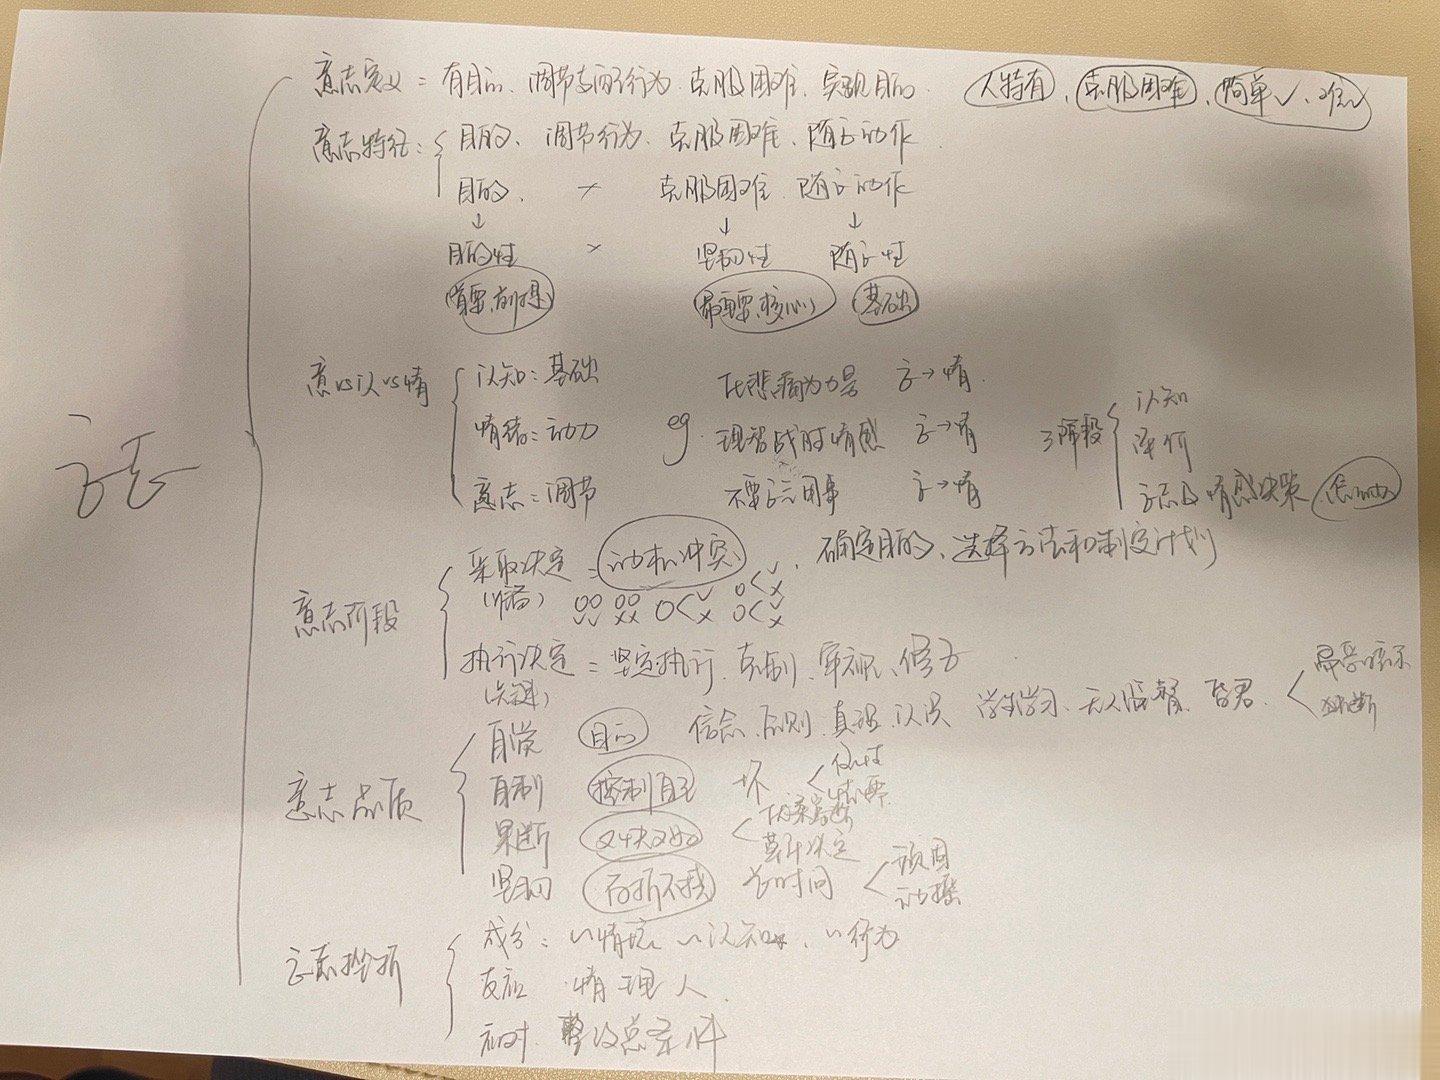 意志
意志定义 = 有目的、调节支配行为、克服困难、实现目的. 人特有、克服困难、简单✓、难✓
意志特征: 目的、调节行为、克服困难、随意动作
目的、 × 克服困难 随意动作
↓ ↓ ↓
目的性 × 坚韧性 随意性
前提 最重要、核心 基础
意 vs 认 vs 情
认知: 基础 化悲痛为力量 意→情. 认知
情绪: 动力 eg. 理智战胜情感 意→情 3阶段
意志: 调节 不要意气用事 意→情 情感决策
意志阶段
采取决定 = 动机冲突、确定目的、选择方法和制定计划
执行决定 = 坚定执行、克制、审视、修正
(关键)
意志品质
自觉 目的 信念、原则、真理、认识 学生学习、无人监督、 易受暗示
独断
自制 控制自己 坏 任性
果断 优柔寡断
草率决定
坚韧 百折不挠 长时间 顽固
动摇
意志挫折
成分: 〃情境 〃认知、〃行为
反应 情 理 人.
应对.